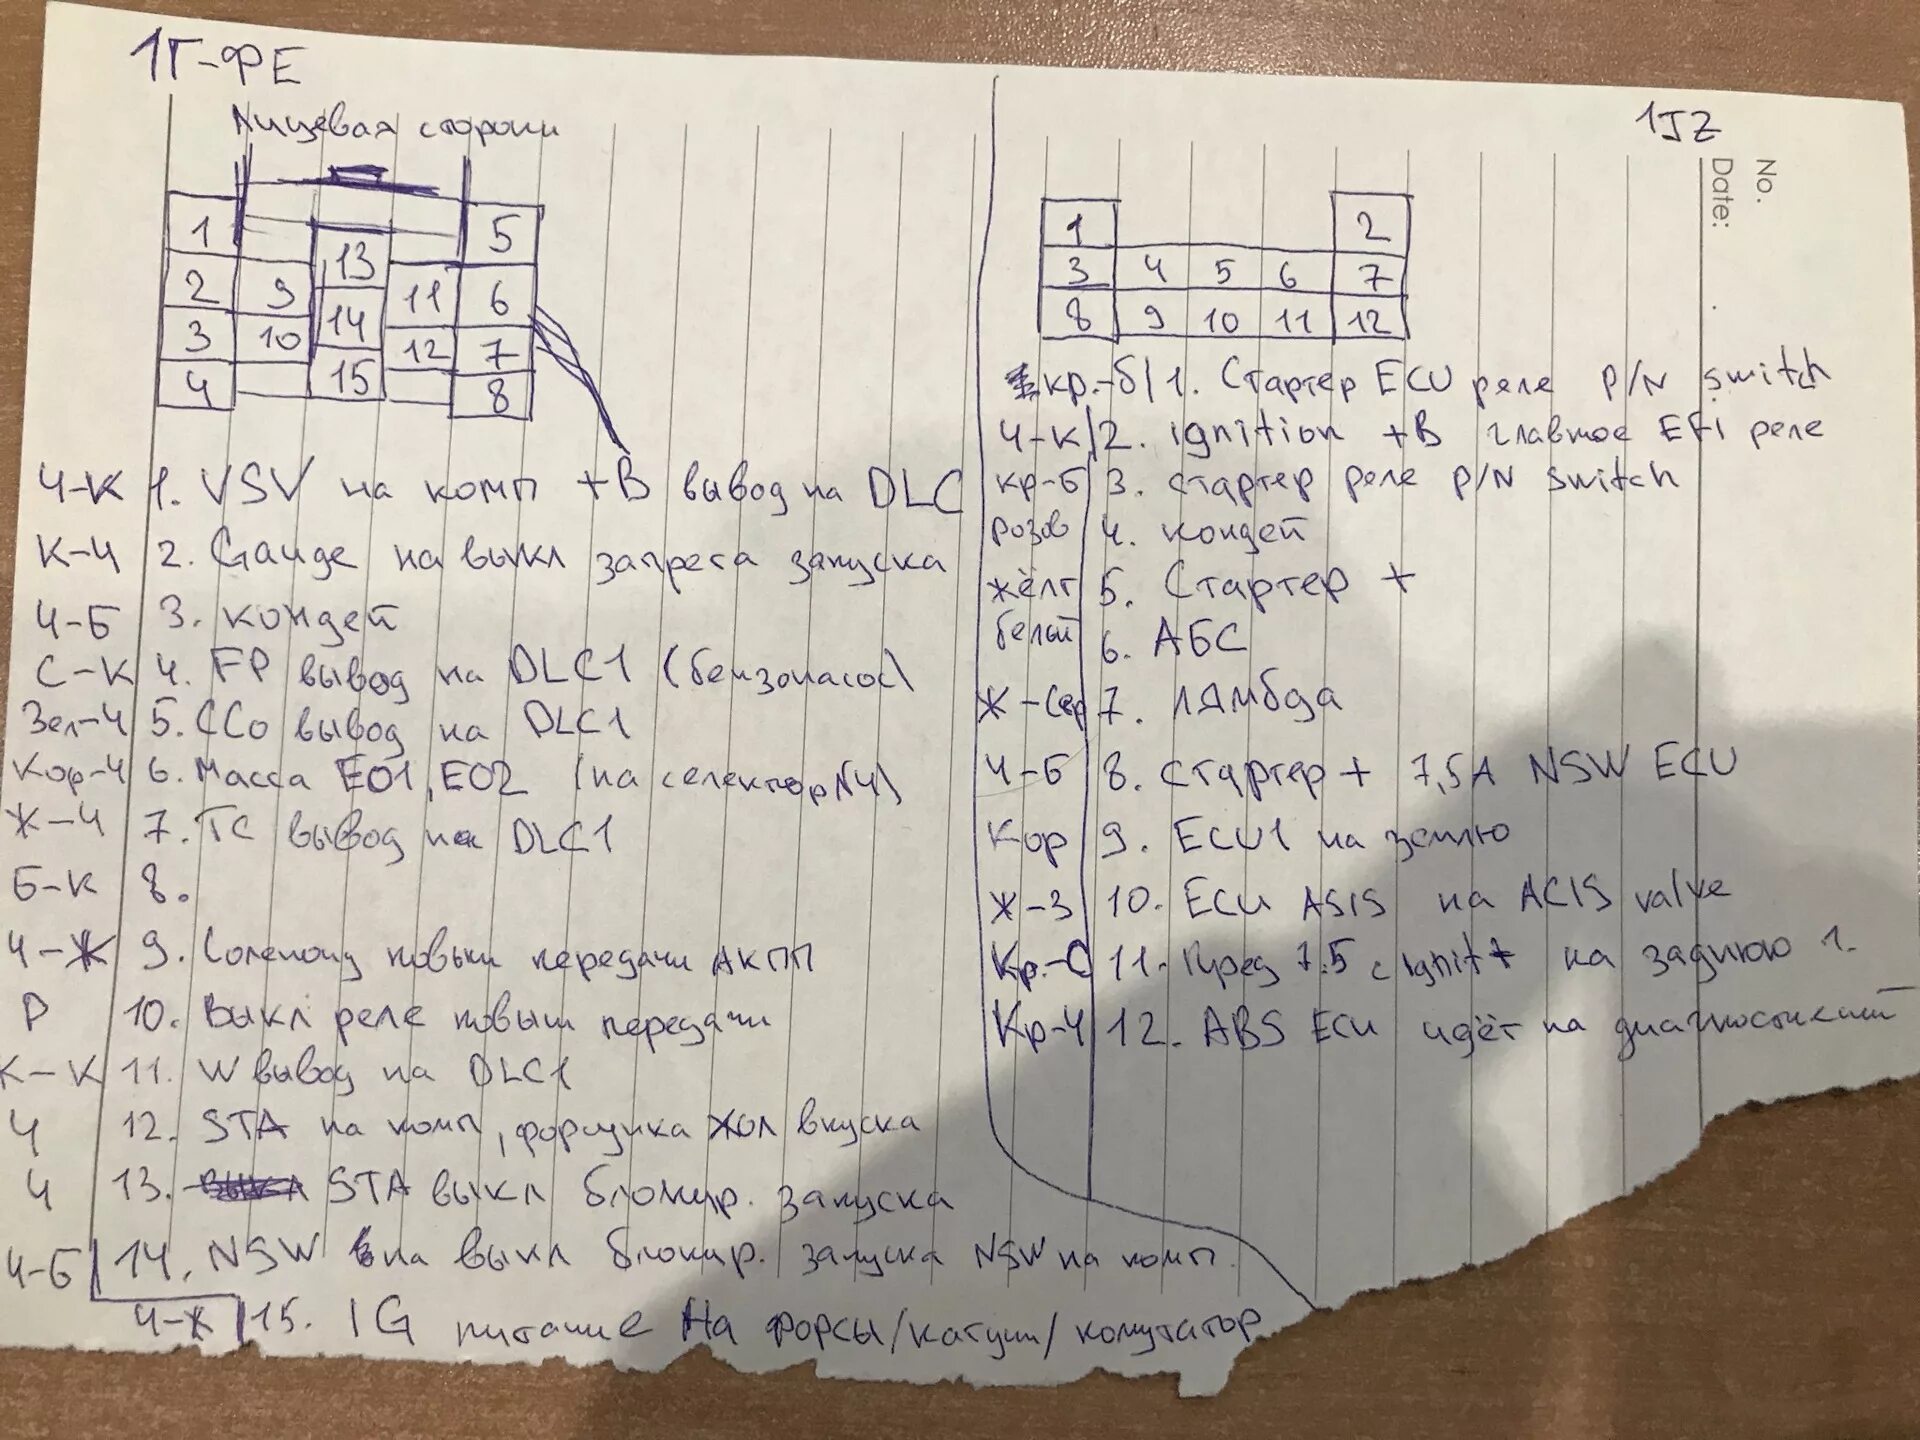 1Г-ФЕ
Лицевая сторони
1 5
13
2 9 11 6
14
3 10 12 7
15
4 8
Ч-К 1. VSV на комп +B вывод на DLC
К-Ч 2. Gauge на выкл запрета запуска
Ч-Б 3. кондей
С-К 4. FP вывод на DLC1 (бензонасос)
Зел-Ч 5. CCo вывод на DLC1
Кор-Ч 6. Масса E01, E02 (на селектор N4)
Ж-Ч 7. TC вывод на DLC1
Б-К 8.
Ч-Ж 9. Соленоид повыш передачи АКПП
Р 10. Выкл реле повыш передачи
К-К 11. W вывод на DLC1
Ч 12. STA на комп, форсунка хол впуска
Ч 13. STA выкл блокир. запуска
Ч-Б 14. NSW на выкл блокир. запуска NSW на комп.
Ч-Ж 15. IG питание На форсы/катуш/комутатор
1JZ
No.
Date:
1 2
3 4 5 6 7
8 9 10 11 12
кр.-б 1. Стартер ECU реле P/N switch
Ч-К 2. ignition +B главное EFi реле
кр-Б 3. стартер реле P/N switch
розов 4. кондей
жёлт 5. Стартер +
белый 6. АБС
Ж-Сер 7. Лямбда
Ч-Б 8. Стартер + 7,5A NSW ECU
Кор 9. ECU1 на землю
Ж-З 10. ECU ASIS на ACIS valve
Кр.-С 11. Пред 7.5 с Ignit + на заднюю
Кр-Ч 12. ABS ECU идёт на диагностический